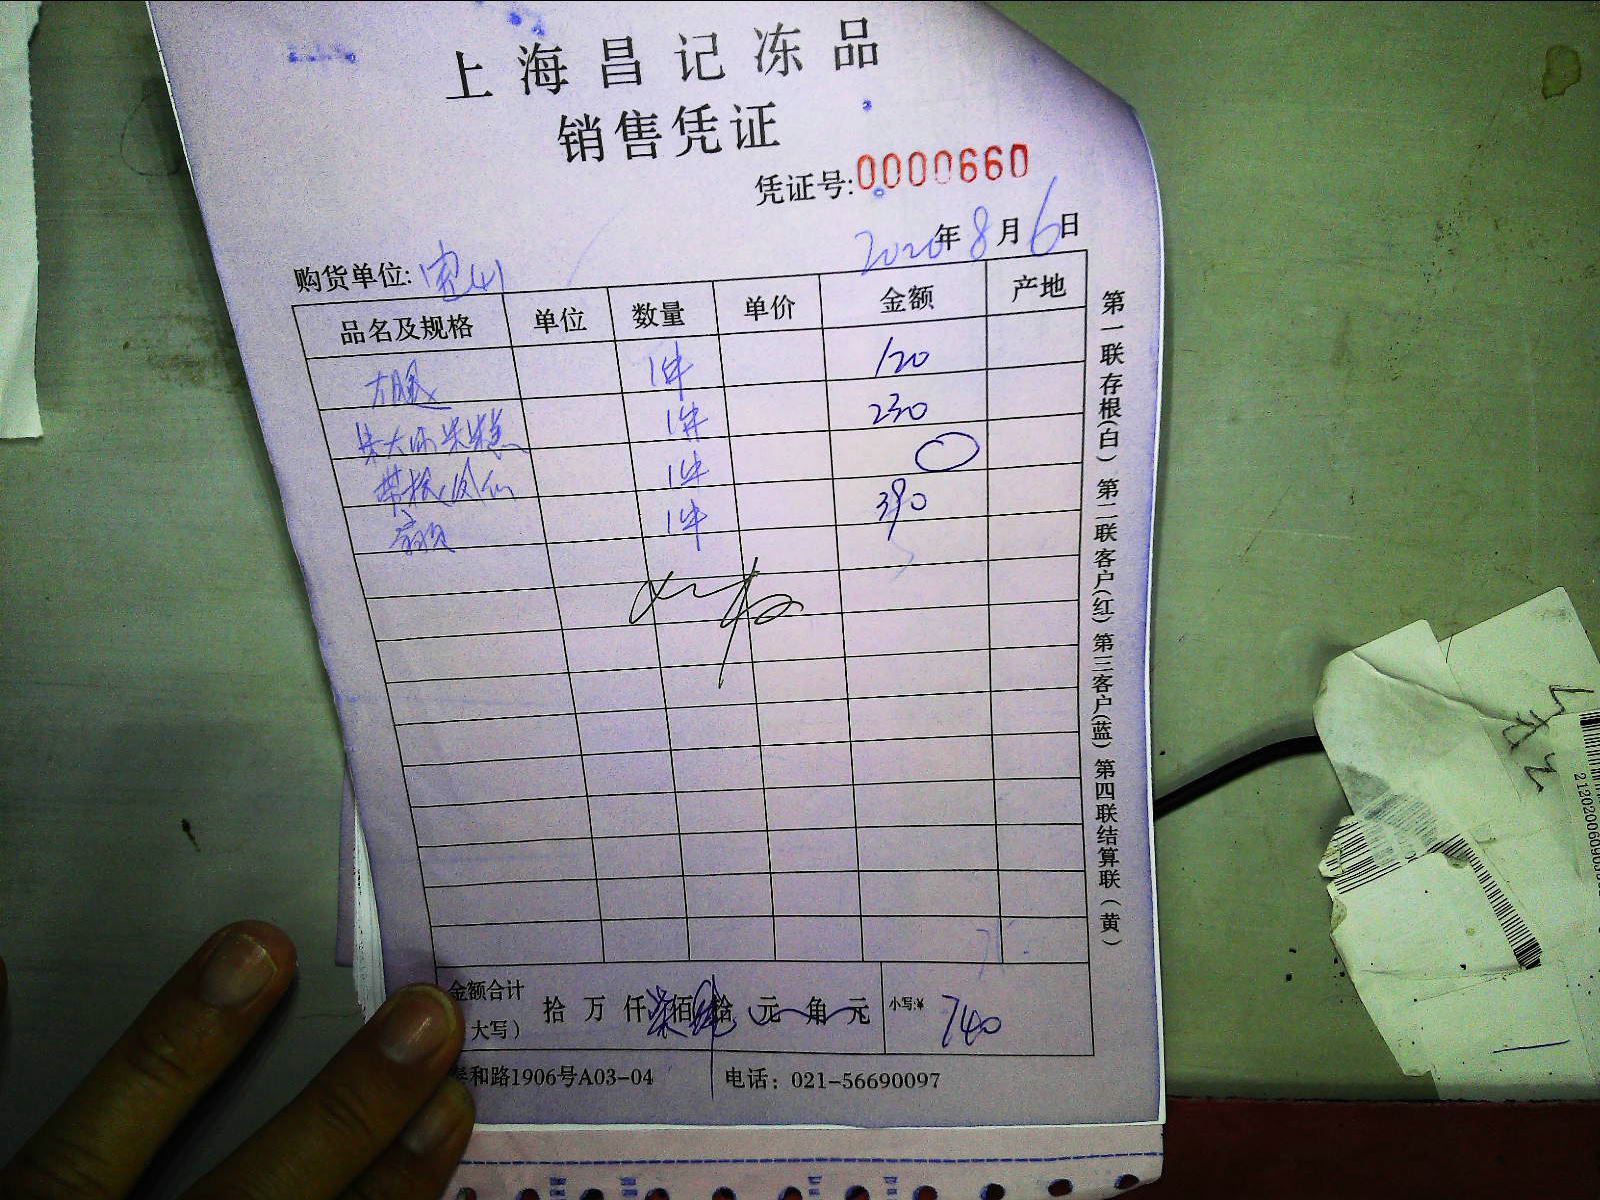 上海昌记冻品
销售凭证
凭证号:0000660
2020年8月6日
购货单位:宝山
品名及规格 单位 数量 单价 金额 产地
1件 120
1件 230
1件
1件 390
金额合计(大写) 拾 万 仟 柒 佰 拾 元 角 元 小写:¥ 740
泰和路1906号A03-04 电话：021-56690097
第一联存根(白) 第二联客户(红) 第三客户(蓝) 第四联结算联（黄）